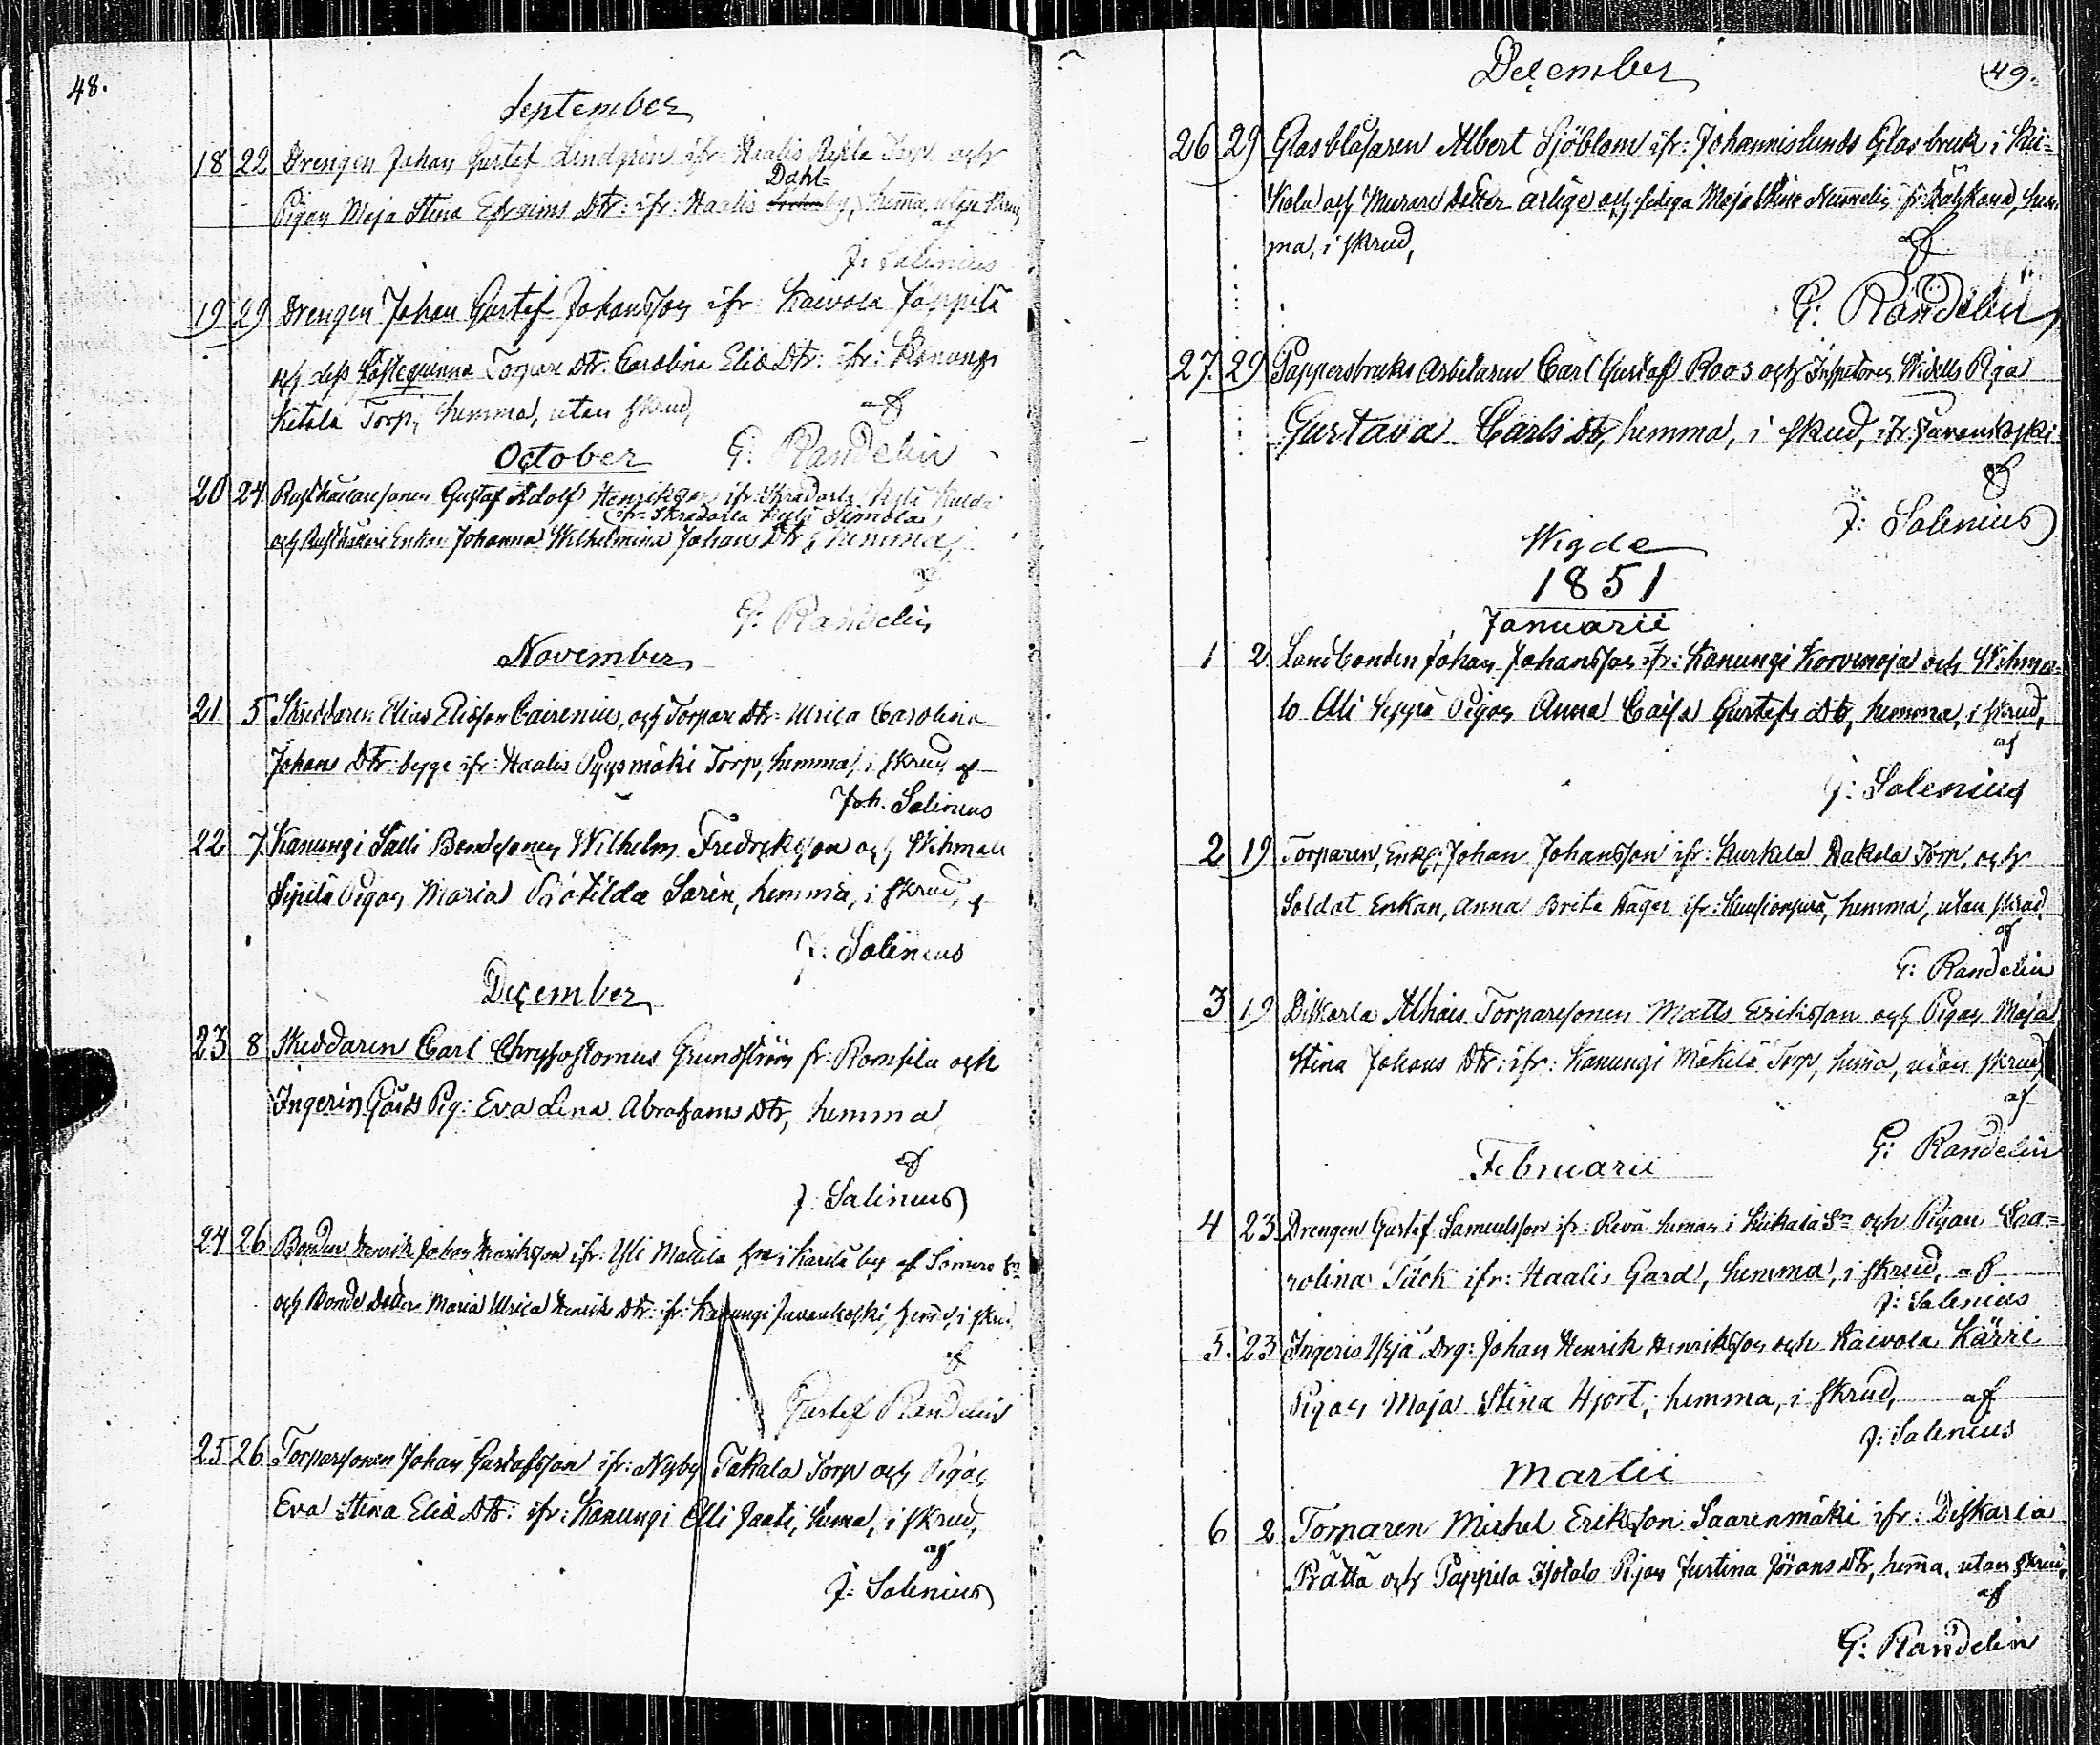 48.
September
18 22 Drengen Johan Gustef Lindgrén ifr: Haalis Torp och
Dahl=
Pigan Maja Stina Efraims Dtr: ifr: Haalis by, hemma, utan skrud,
af
J: Salenius
19 29 Drengen Johan Gustef Johansson ifr: Kaivola Jäppilä
och dess Torpare Dtr. Carolina Eliæ Dtr: ifr: Kanungi
Ketola Torp, hemma, utan skrud,
af
October G: Randelin
20 24 Rusthållaresonen Gustaf Adolf Henriksson ifr: Skradarla
ifr: Skradarla Simola
och Enkan Johanna Wilhelmina Johans Dtr, hemma,
af
G: Randelin
November
21 5 Skreddaren Elias Eliæson Cairenius, och Torpare Dtr: Ulrica Carolina
Johans Dtr: begge ifr: Haalis Pyysmäki Torp, hemma, i skrud, af
Joh. Salenius
22 7 Kanungi Bondesonen Wilhelm Fredriksson och Wihmalo
Sipilä Pigan, Maria Matilda Sarén, hemma, i skrud, af
J: Salenius
December
23 8 Skreddaren Carl Chrysostomus Grundström fr: Romsila och
Ingeris Pig: Eva Lena Abrahams Dtr, hemma,
af
J: Salenius
24 26 Bonden Henrik Johan Henriksson ifr: Yli Mattila i by af Somero Sn
och Bonde Maria Ulrica Henriks Dtr: ifr: Kanungi Juvankoski, hemma, i skrud,
af
Gustef Randelin
25 26 Torparsonen Johan Gustafsson ifr: Nyby Takala Torp och Pigan
Eva Stina Eliæ Dtr: ifr: Kanungi Elli Jaati, hemma, i skrud,
af
J: Salenius
December
49.
26 29 Glasblåsaren Albert Sjöblom ifr: Johannislunds Glasbruk i Kii=
kala och Murare ärlige och sediga Maja Stina ifr: hem
ma, i skrud,
af
G: Randelin
27. 29 Pappersbruks Arbetaren Carl Gustaf Roos och Inspectoren Widells Piga
Gustava Carls Dtr, hemma, i skrud, ifr: Juvankoski
af
J: Salenius
Wigde
1851
Januarii
1 2 Landbonden Johan Johansson ifr: Kanungi Korvenoja och Wihma=
lo Ali Seppä Pigan Anna Caisa Gustefs Dtr, hemma, i skrud,
af
J: Salenius
2 19 Torparen, Enkl: Johan Johansson ifr: Kurkela Takala Torp, och
Soldat Enkan, Anna Brita Hager ifr: hemma, utan skrud,
af
G: Randelin
3 19 Diskarla Alhais Torparesonen Matts Eriksson och Pigan Maja
Stina Johans Dtr: ifr: Kanungi Mäkilä Torp, hemma, utan skrud,
af
G: Randelin
Februarii
4 23 Drengen Gustef Samuelsson ifr: Revä heman i Kiikala Sn och Pigan Ca=
rolina Tück ifr: Haalis Gård, hemma, i skrud, af
J: Salenius
5. 23 Ingeris Ysjä Drg: Johan Henrik Henriksson och Kaivola Kärri
Pigan, Maja Stina Hjort, hemma, i skrud, af
J: Salenius
Martii
6 2 Torparen Michel Eriksson Saarenmäki ifr: Diskarla
Prättä och Pappila Pigan Justina Görans Dtr, hemma, utan skrud,
af
G: Randelin